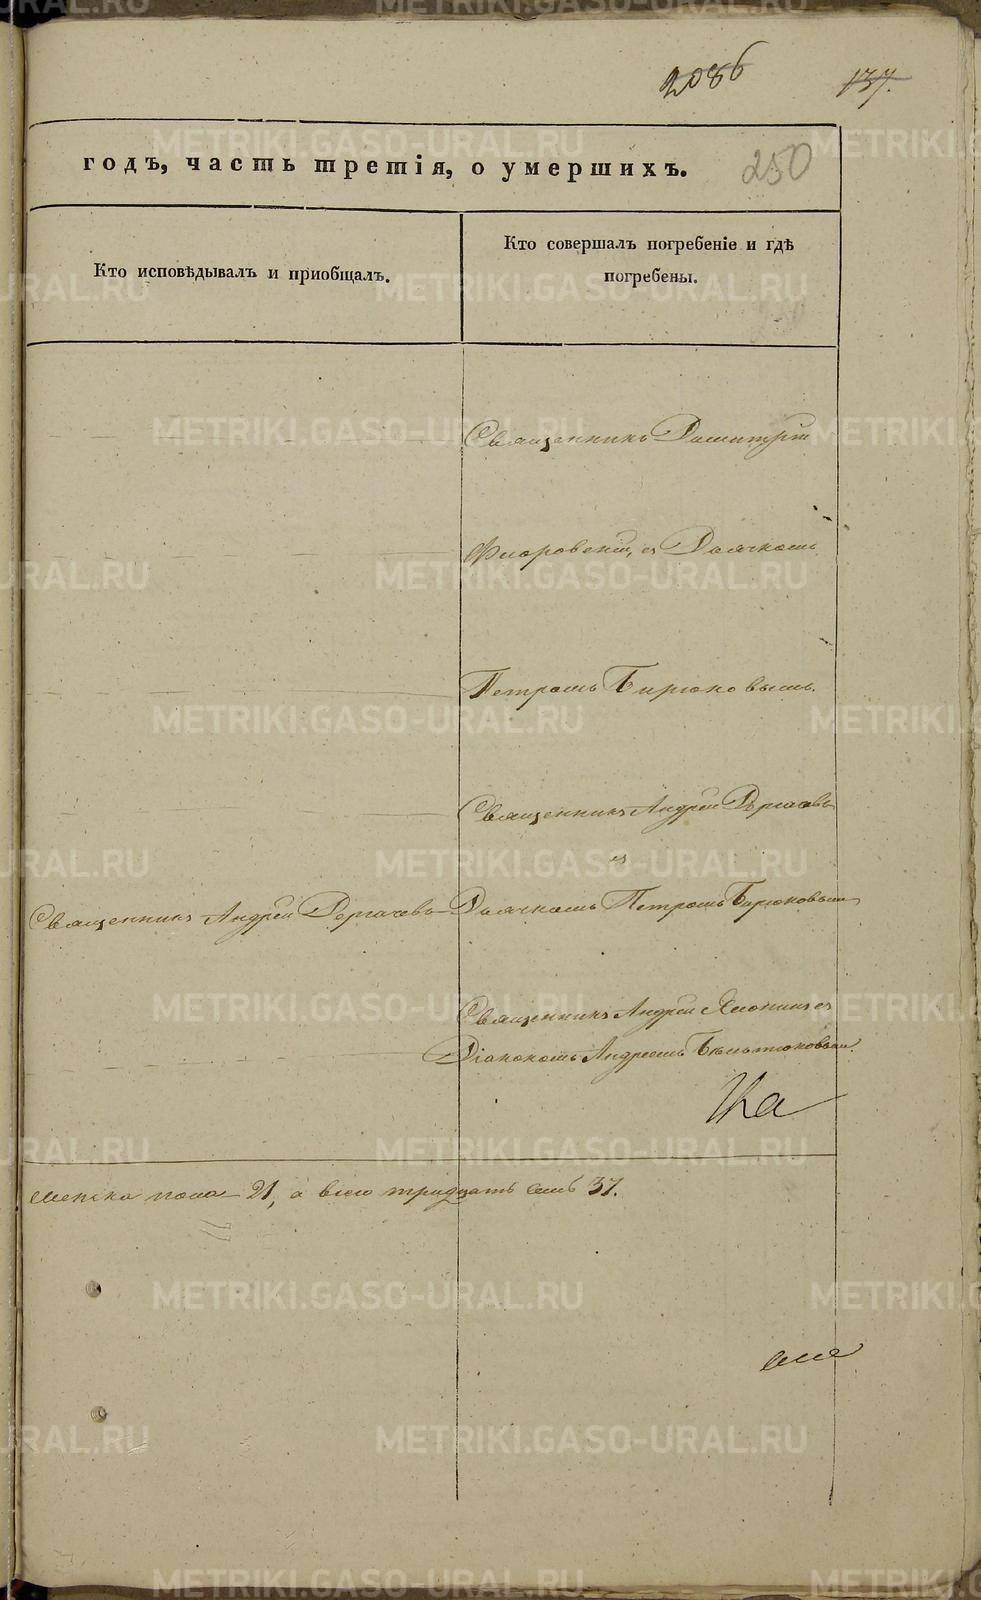 2086
137.
годъ, часть третія, о умершихъ.
250
Кто исповѣдывалъ и приобщалъ.
Кто совершалъ погребеніе и гдѣ
погребены.
Священникъ Димитрій
Флоровскій, съ Дьячкомъ
Петромъ Бирюковымъ.
Священникъ Андрей Дергачевъ
съ
Священникъ Андрей Дергачевъ
Дьячкомъ Петромъ Бирюковымъ
Священникъ Андрей съ
Діакономъ Андреемъ
женска пола 21, а всего тридцать семь 37.
METRIKI.GASO-URAL.RU